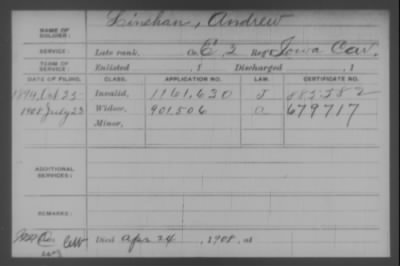 NAME OF SOLDIER: Linehan, Andrew
SERVICE: Late rank, Co. E, 2 Reg't Iowa Cav.
TERM OF SERVICE: Enlisted , 1 Discharged , 1
DATE OF FILING. CLASS. APPLICATION NO. LAW. CERTIFICATE NO.
1894, Oct 25 Invalid, 1161,630 J 885582
1908 July 23 Widow, 901,506 679717
Minor,
ADDITIONAL SERVICES:
REMARKS:
Died Apr 24, 1908, at